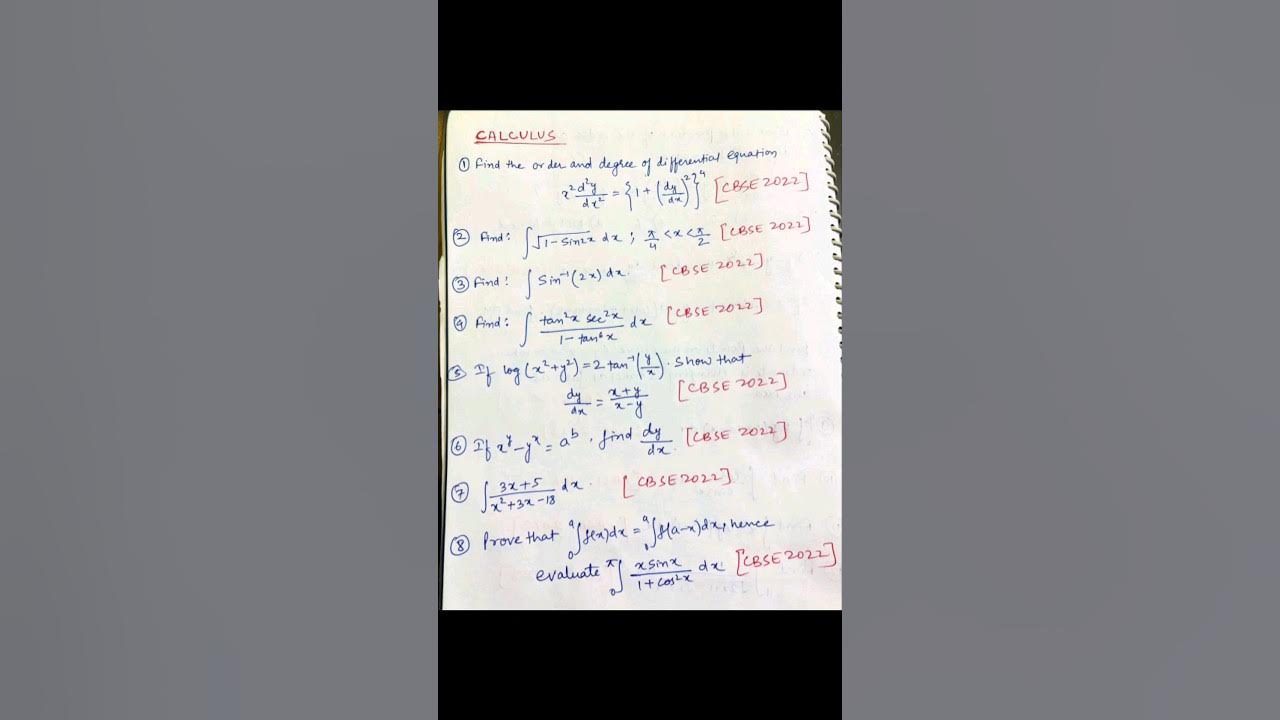 CALCULUS
① Find the order and degree of differential equation
x² d²y/dx² = {1 + (dy/dx)²}⁴ [CBSE 2022]
② Find: ∫√1 - Sin2x dx ; π/4 < x < π/2 [CBSE 2022]
③ Find: ∫ Sin⁻¹(2x) dx. [CBSE 2022]
④ Find: ∫ tan²x sec²x / 1 - tan⁶x dx [CBSE 2022]
⑤ If log(x² + y²) = 2 tan⁻¹(y/x). Show that
dy/dx = x+y / x-y [CBSE 2022]
⑥ If xʸ - yˣ = aᵇ, find dy/dx. [CBSE 2022]
⑦ ∫ 3x+5 / x²+3x-18 dx. [CBSE 2022]
⑧ Prove that ₀ᵃ∫f(x)dx = ₀ᵃ∫f(a-x)dx, hence
evaluate ₀^π∫ x sinx / 1+cos²x dx. [CBSE 2022]